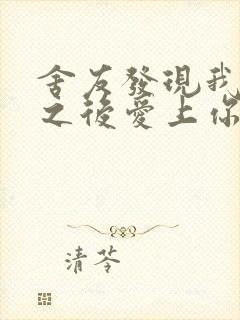 舍友發現我
之後愛上你
清苓